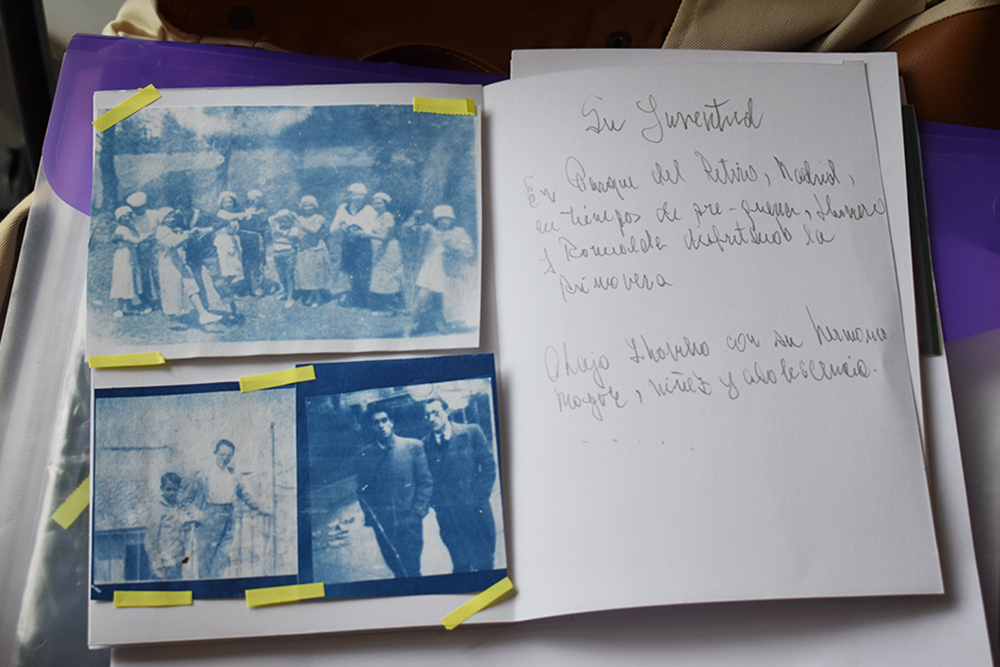 Su Juventud
En Parque del Retiro, Madrid,
en tiempos de pre-guerra,
y Romualda disfrutando la
primavera
Abajo con su hermano
mayor, niñez y adolescencia.
. . . . . .